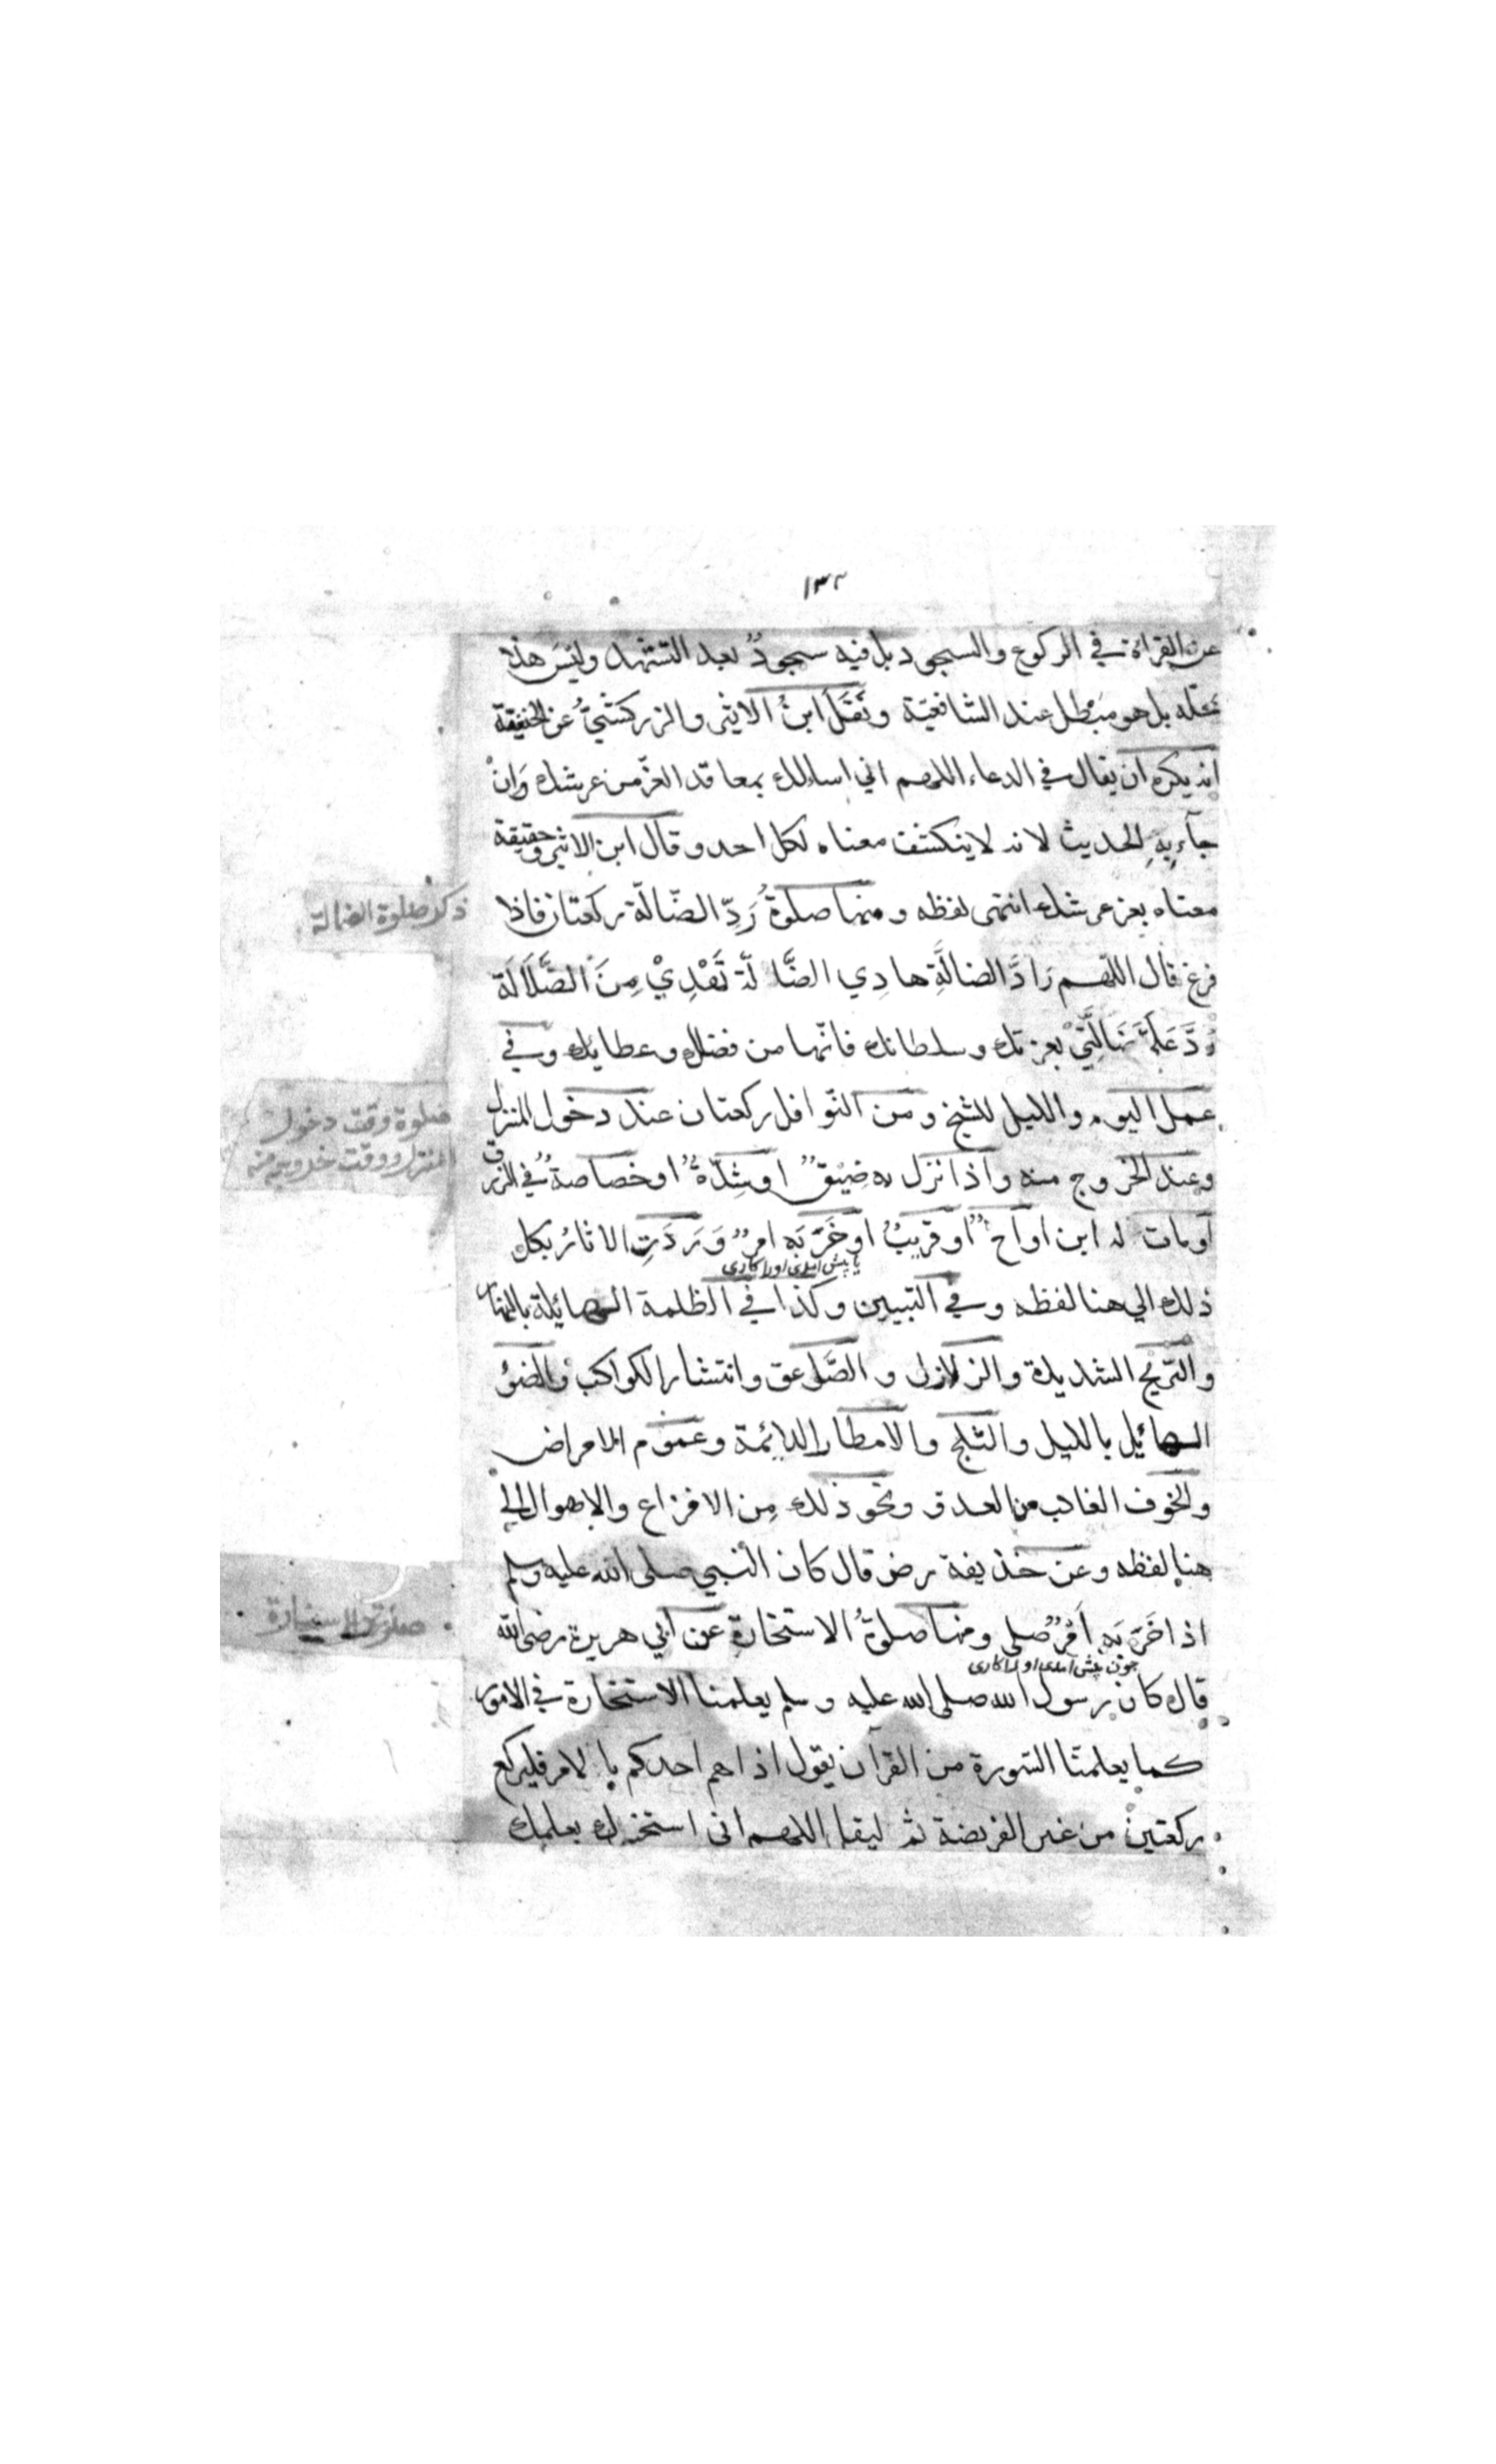 ١٣٢
عن القراة في الركوع والسجود بل فيه سجودٌ بعد التشهد وليسَ هذا
محله بل هو مبطل عند الشافعيّة ونَقَلَ ابنُ الاثير والزركشيُّ عن الحنفية
انه يكره ان يقال في الدعاء اللهم اني اسالك بمعاقد العزّ من عرشك وَانْ
جآء بِهِ الحديث لانه لا ينكشف معناه لكل احد وقال ابن الاثير وحقيقة
معناه بعز عرشك انتهى لفظه ومنها صلوةُ رَدِّ الضّالّة ركعتان فاذا
ذكر صلوة الضالة
فرغ قال اللّهم رَادَّ الضالَّةِ هادِي الضَّالَّة تَهْدِيْ مِنَ الضَّلَالَة
رُدَّ عَلَيَّ ضَالَّتِيْ بعزتك وسلطانك فانّها من فضلك وعطايك وفي
عمل اليوم والليل للشيخ ومن النّوافل ركعتان عند دخول المنزل
صلوة وقت دخول
المنزل ووقت خروجه منه
وعند الخروج منه واذا نزل به ضِيْق اوشِدّة او خصاصة في الرزق
او مات له ابن او اخ او قريبٌ او حَزَبَه امرٌ وَوَرَدَتِ الاثارُ بكل
يا پیش امدی اورا کاری
ذلك الي هنا لفظه وفي التبيين وكذا في الظلمة الهائلة بالنهار
والرّيح الشديدة والزلازل والصَّواعق وانتشار الكواكب والضوُ
الهائيل بالليل والثلج والامطار الدايمة وعموم الامراض
والخوف الغالب من العدو ونحو ذلك مِن الافزاع والاهوال الي
هنا لفظه وعن حذيفة رض قال كان النبي صلى الله عليه وسلم
اذا حَزَبَه اَمْرٌ صلى ومنها صلوةُ الاستخارة عن ابي هريرة رضى الله
صلوة الاستخارة
چون پیش امدی اورا کاری
قال كان رسول الله صلى الله عليه وسلم يعلمنا الاستخارة في الامور
كما يعلمنا السّورة من القرآن يقول اذا هم احدكم بالامر فليركع
ركعتين من غير الفريضة ثم ليقل اللهم انى استخيرك بعلمك